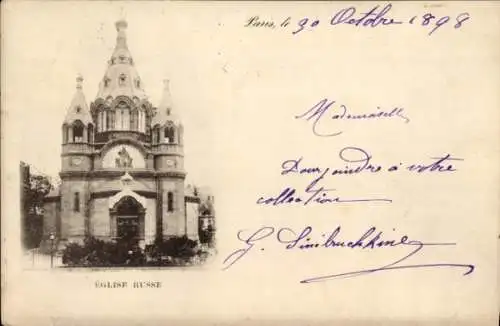 Paris, le 30 Octobre 1898
Mademoiselle
Pour joindre à votre
collection
G. Sinibruchkine
ÉGLISE RUSSE